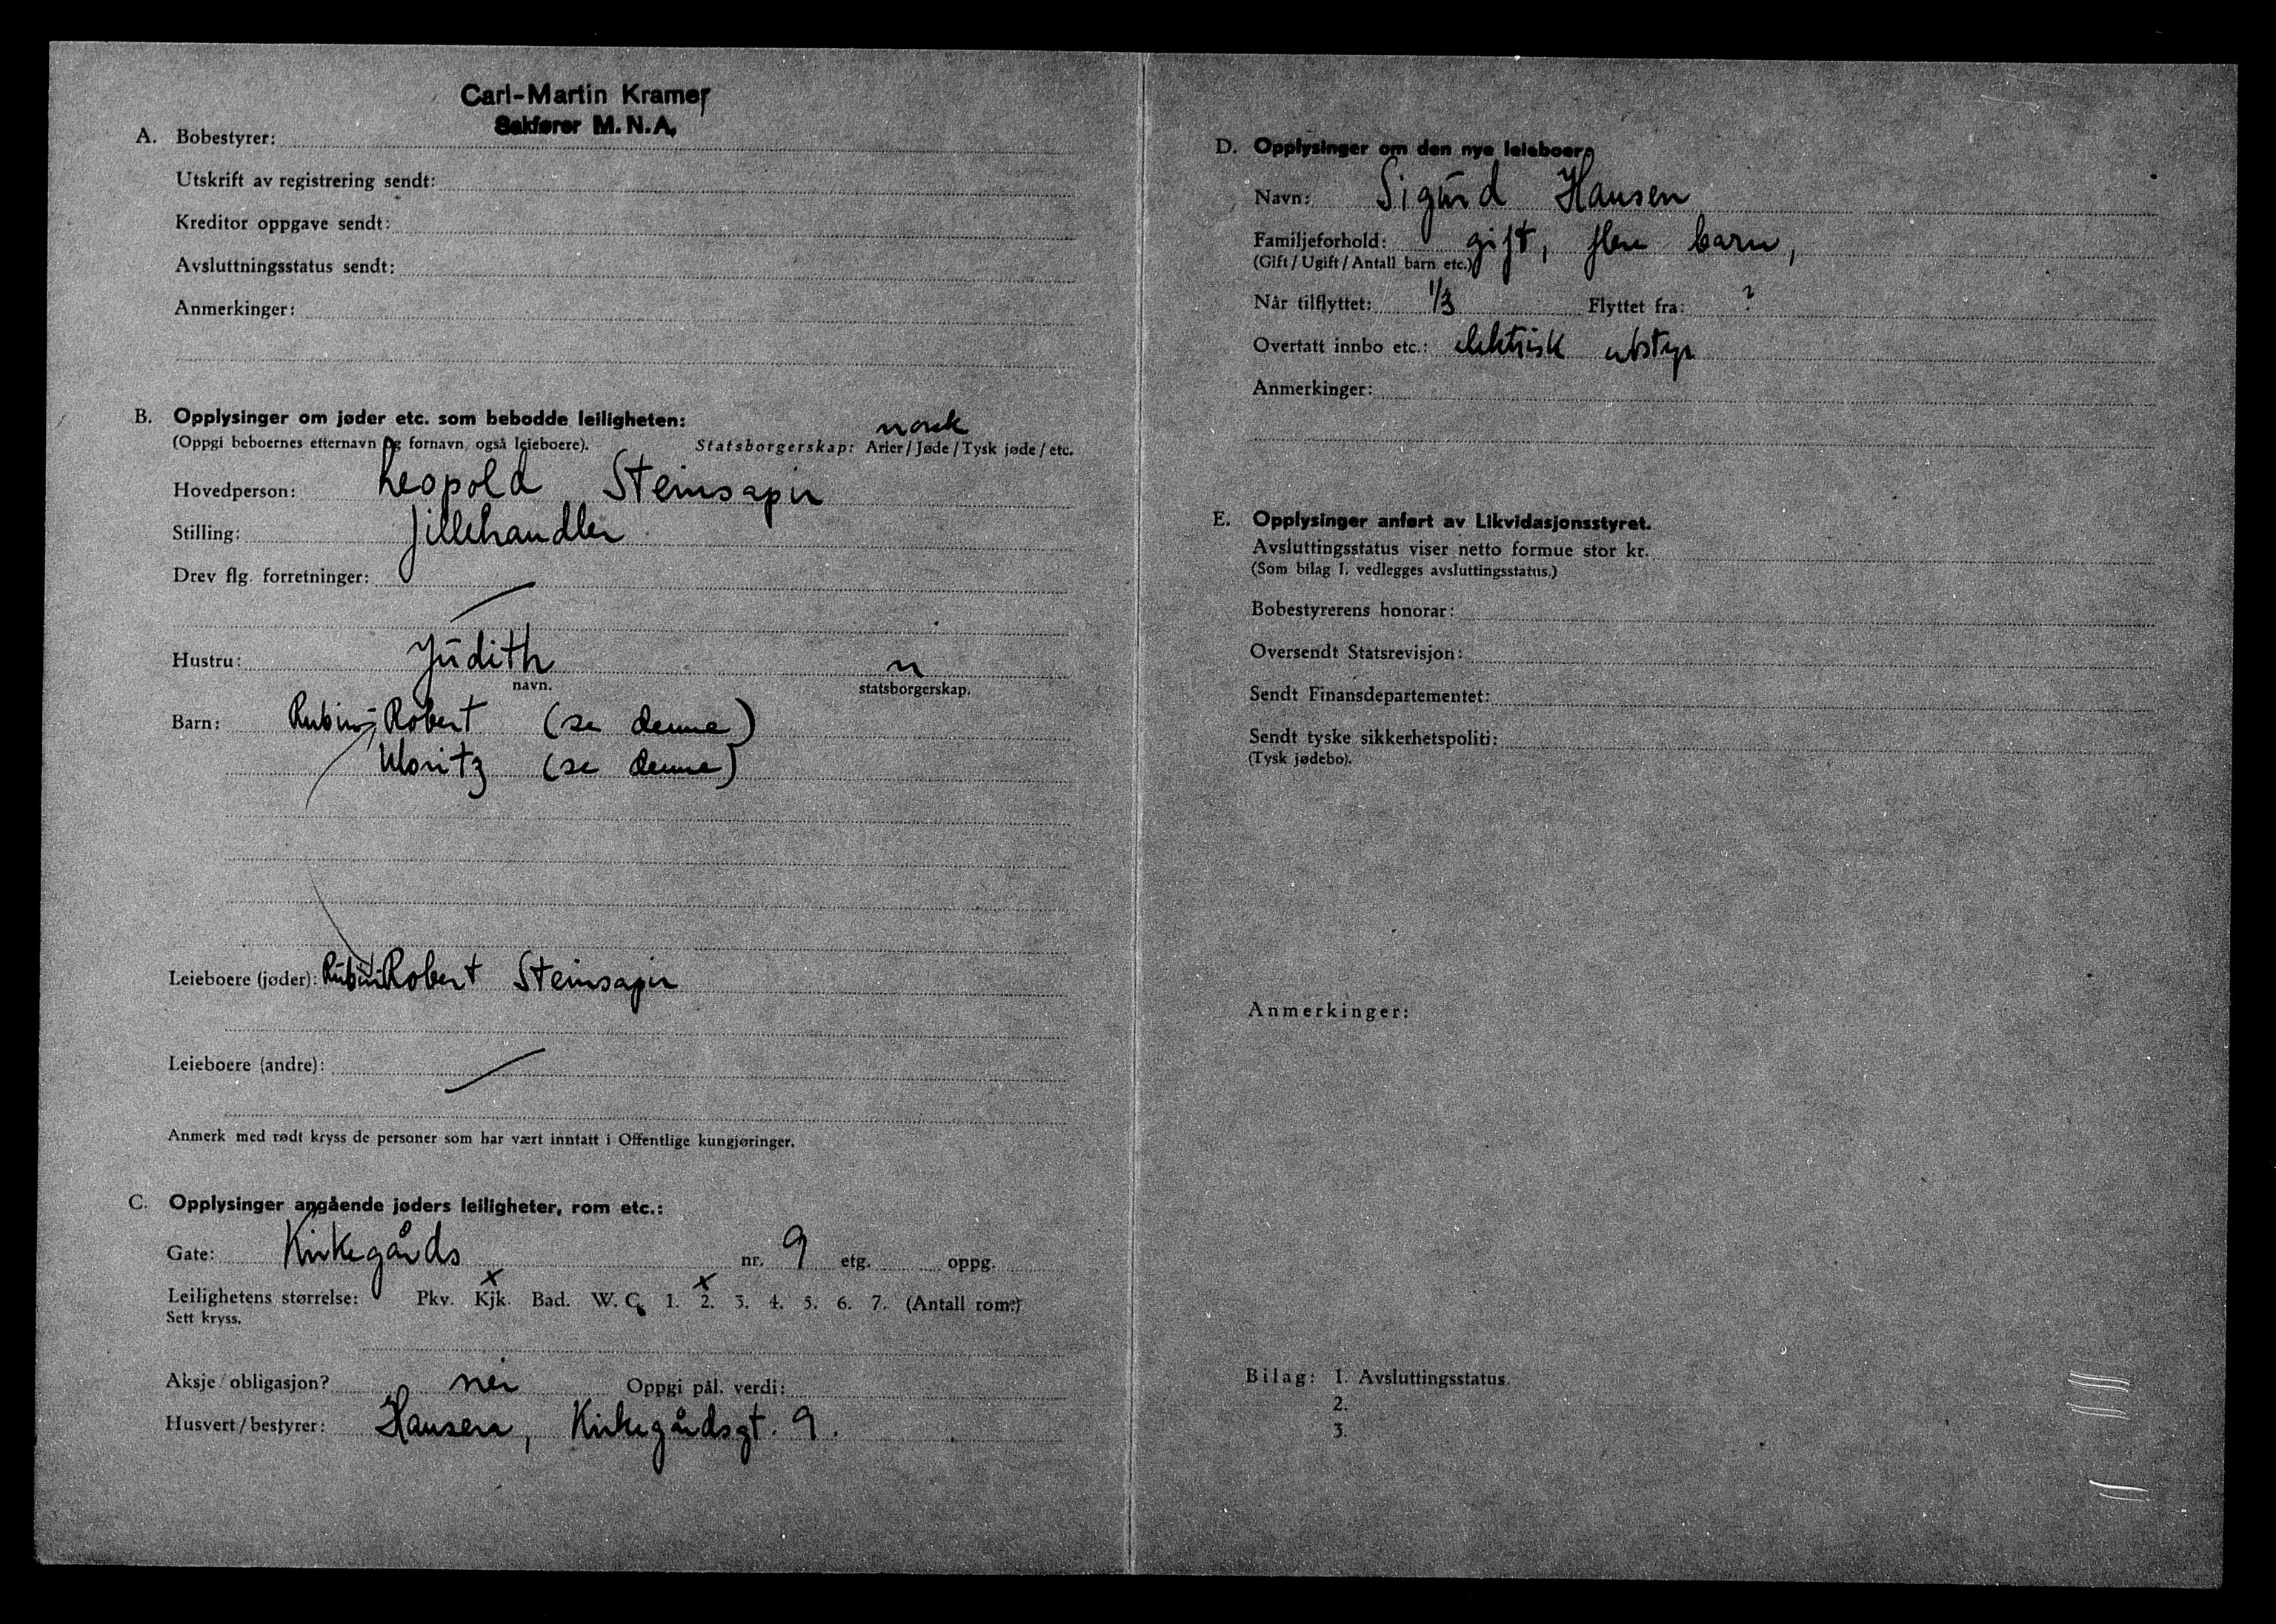 Carl-Martin Kramer
Sakfører M.N.A.
A. Bobestyrer:
Utskrift av registrering sendt:
Kreditor oppgave sendt:
Avsluttningsstatus sendt:
Anmerkinger:
B. Opplysinger om jøder etc. som bebodde leiligheten:
norsk
(Oppgi beboernes etternavn og fornavn, også leieboere). Statsborgerskap: Arier/Jøde/Tysk jøde/etc.
Hovedperson: Leopold Steinsapir
Stilling: Fillehandler
Drev flg. forretninger:
Hustru: Judith n
navn. statsborgerskap.
Barn: Rubin, Robert (se denne)
Moritz (se denne)
Leieboere (jøder): Rubin Robert Steinsapir
Leieboere (andre):
Anmerk med rødt kryss de personer som har vært inntatt i Offentlige kungjøringer.
C. Opplysinger angående jøders leiligheter, rom etc.:
Gate: Kirkegårds nr. 9 etg. oppg.
x x
Leilighetens størrelse: Pkv. Kjk. Bad. W.C. 1. 2. 3. 4. 5. 6. 7. (Antall rom:)
Sett kryss.
Aksje/obligasjon? nei Oppgi pål. verdi:
Husvert/bestyrer: Hansen, Kirkegårdsgt. 9.
D. Opplysinger om den nye leieboer:
Navn: Sigurd Hansen
Familjeforhold: gift, flere barn,
(Gift/Ugift/Antall barn etc.)
Når tilflyttet: 1/3 Flyttet fra: ?
Overtatt innbo etc.: elektrisk utstyr
Anmerkinger:
E. Opplysinger anført av Likvidasjonsstyret.
Avsluttingsstatus viser netto formue stor kr.
(Som bilag I. vedlegges avsluttingsstatus.)
Bobestyrerens honorar:
Oversendt Statsrevisjon:
Sendt Finansdepartementet:
Sendt tyske sikkerhetspoliti:
(Tysk jødebo).
Anmerkinger:
Bilag: 1. Avsluttingsstatus.
2.
3.